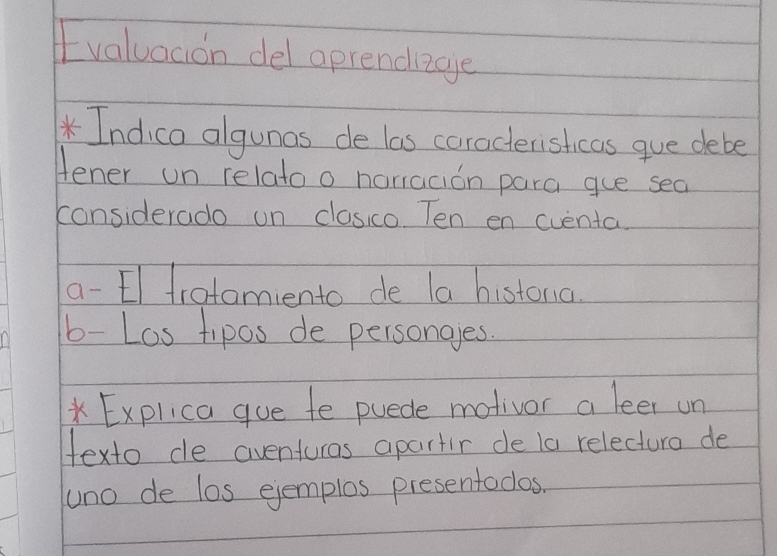 Evaluación del aprendizaje
* Indica algunas de las caracteristicas que debe
tener un relato o narración para que sea
considerado un clasico. Ten en cuénta.
a- El tratamiento de la historia.
b- Los tipos de personajes.
* Explica que te puede motivar a leer un
texto de aventuras apartir de la relectura de
uno de los ejemplos presentados.